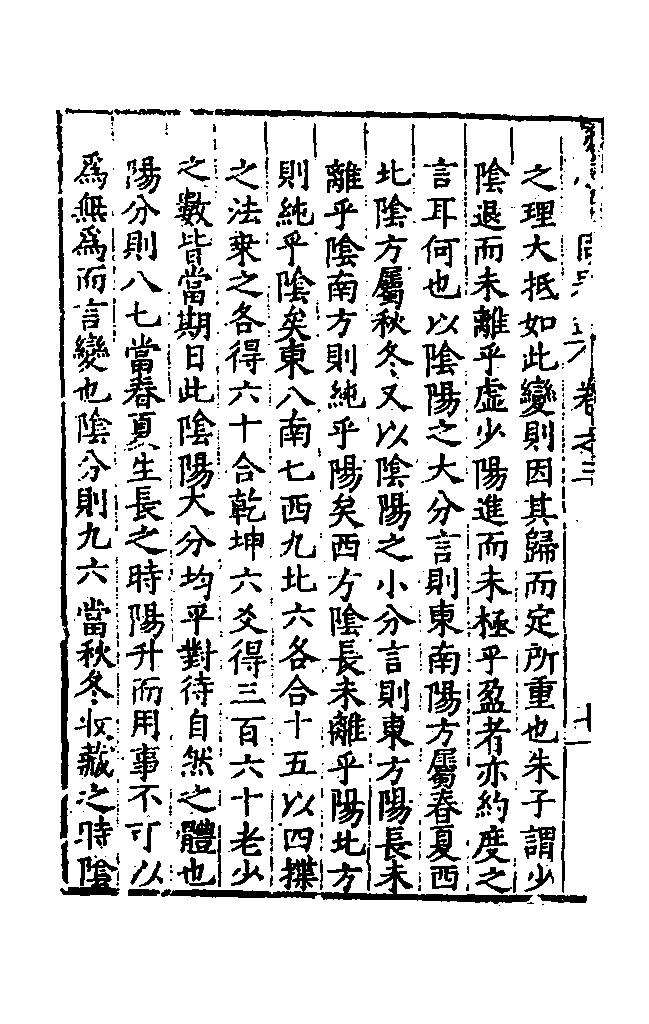 卷之三
七
之理大抵如此變則因其歸而定所重也朱子謂少
陰退而未離乎虛少陽進而未極乎盈者亦約度之
言耳何也以陰陽之大分言則東南陽方屬春夏西
北陰方屬秋冬又以陰陽之小分言則東方陽長未
離乎陰南方則純乎陽矣西方陰長未離乎陽北方
則純乎陰矣東八南七西九北六各合十五以四揲
之法乘之各得六十合乾坤六爻得三百六十老少
之數皆當期日此陰陽大分均平對待自然之體也
陽分則八七當春夏生長之時陽升而用事不可以
為無為而言變也陰分則九六當秋冬收藏之時陰